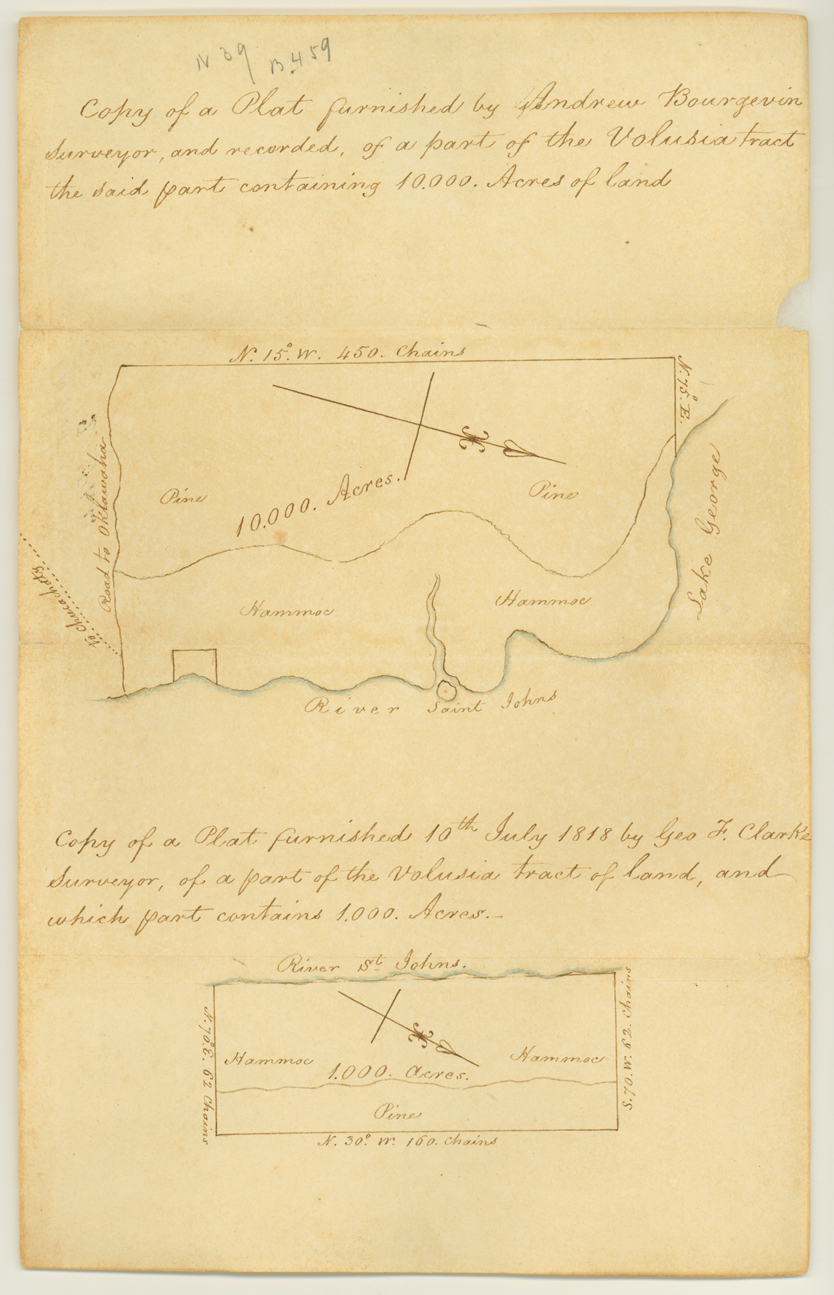 N 39 B 459
Copy of a Plat furnished by Andrew Bourgevin
Surveyor, and recorded, of a part of the Volusia tract
the said part containing 10.000. Acres of land
N. 15.° W. 450. Chains
N. 75.° E.
Pine
Pine
10.000. Acres.
Road to Oklawaha
Lake George
Hammoc
Hammoc
River Saint Johns
Copy of a Plat furnished 10th July 1818 by Geo F. Clarke
Surveyor, of a part of the Volusia tract of land, and
which part contains 1.000. Acres.-
River St Johns.
N. 70° E. 62 Chains
S. 70. W. 62. Chains
Hammoc
Hammoc
1.000. Acres.
Pine
N. 30.° W. 160. Chains